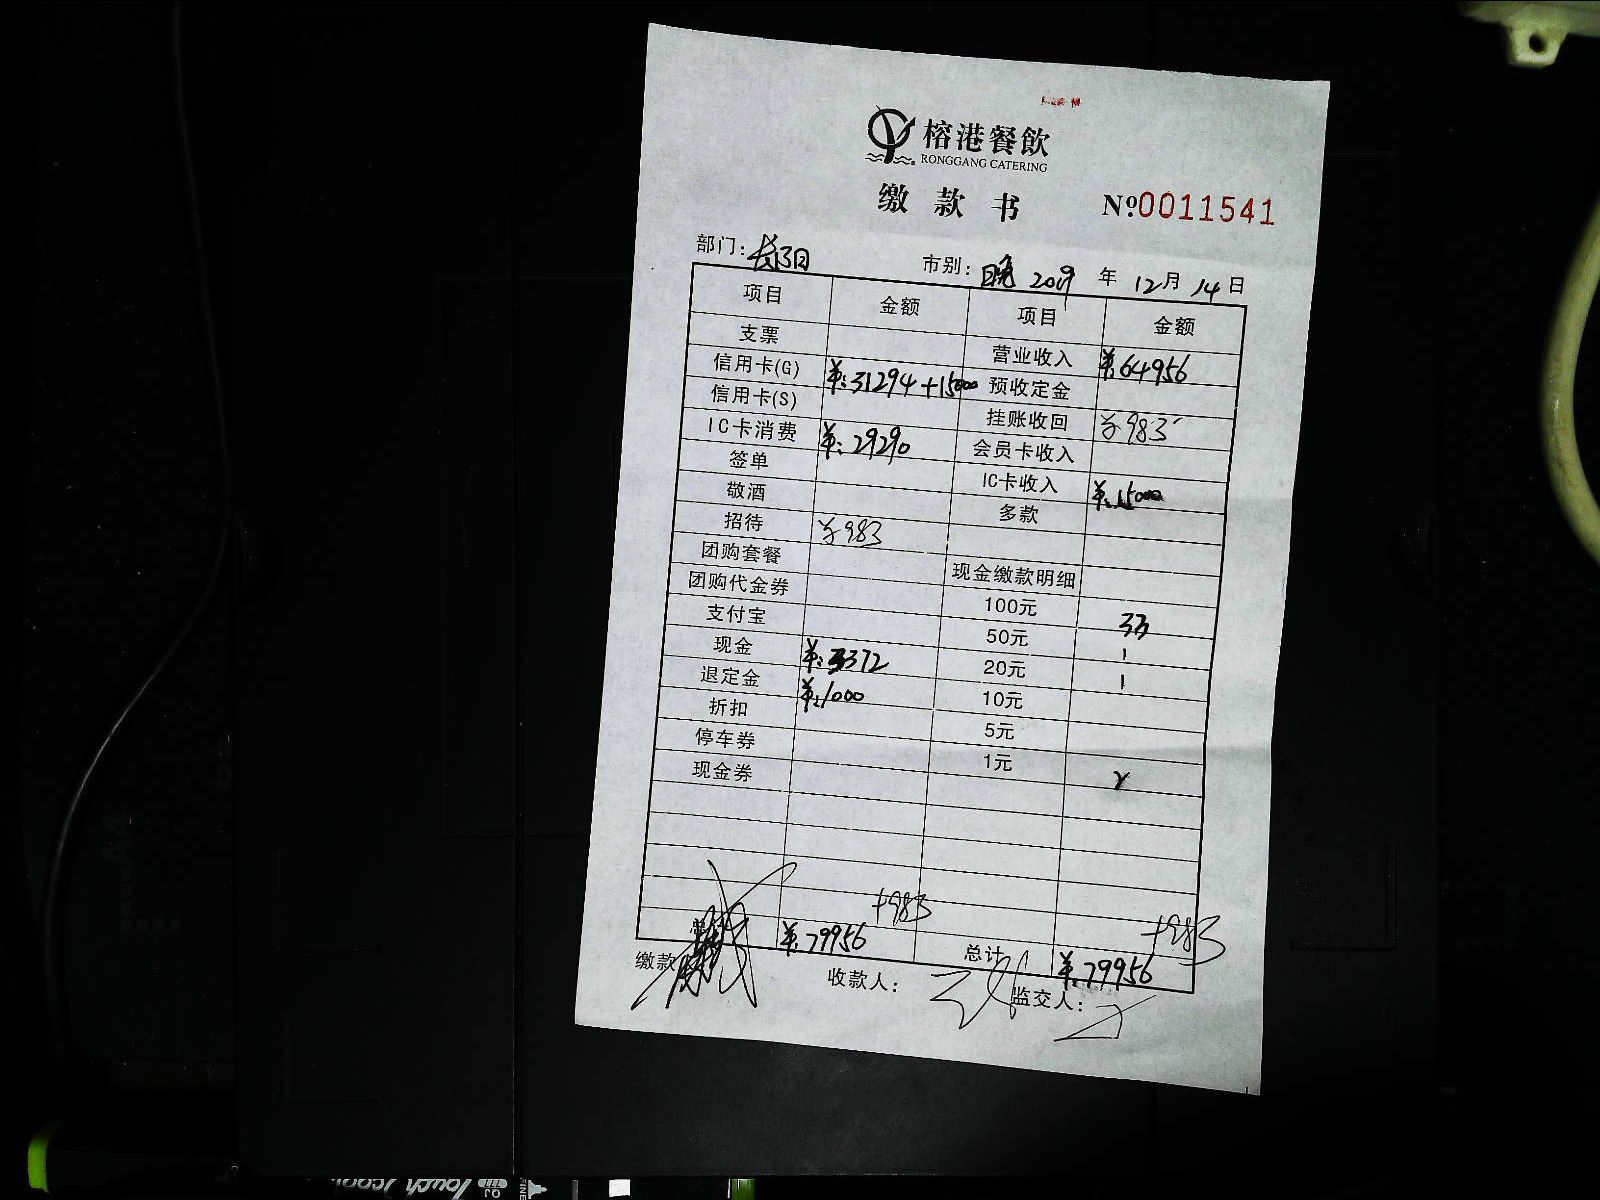 榕港餐飲
RONGGANG CATERING
缴款书 Nº0011541
部门: 市别: 晚 2019 年 12月 14日
项目 金额 项目 金额
支票 营业收入 ¥:64956
信用卡(G) ¥:31294+15000 预收定金
信用卡(S) 挂账收回 ¥983
IC卡消费 ¥:29290 会员卡收入
签单 IC卡收入 ¥:15000
敬酒 多款
招待 ¥983
团购套餐 现金缴款明细
团购代金券 100元 33
支付宝 50元 1
现金 ¥:3372 20元 1
退定金 ¥:1000 10元
折扣 5元
停车券 1元 2
现金券
+983 +983
¥:79956 总计 ¥:79956
缴款 收款人: 监交人: